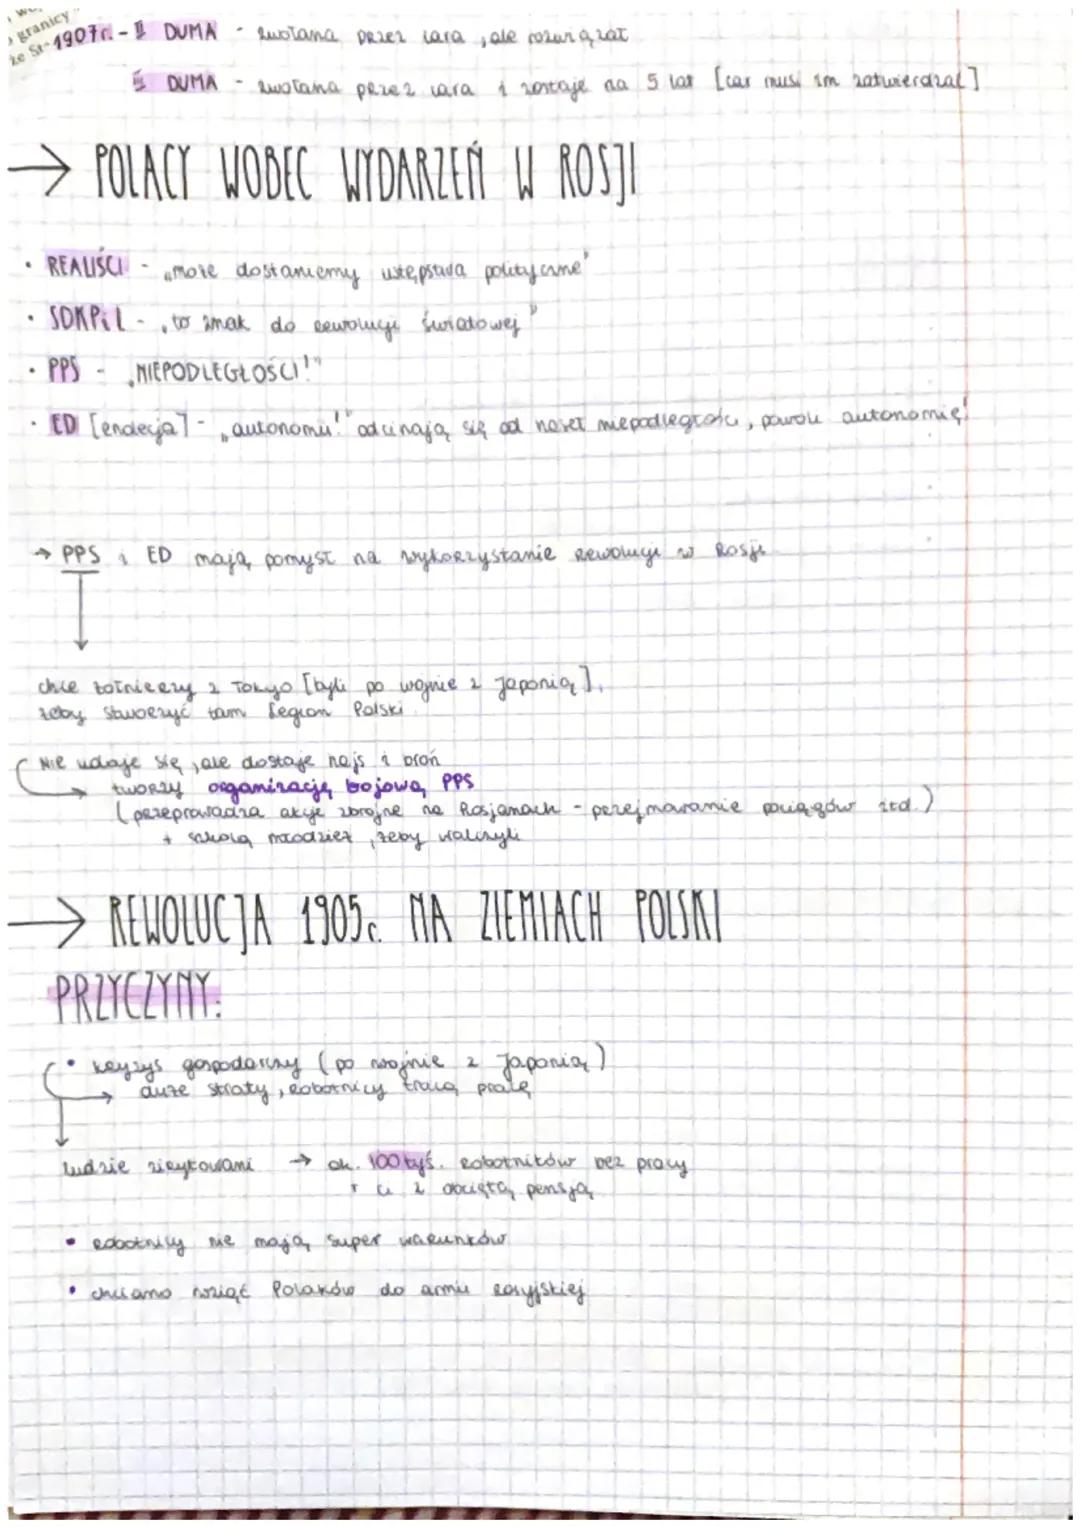 granicy
że St-
1907r. - II DUMA - zwołana przez cara, ale rozwiązał
III DUMA - zwołana przez cara i zostaje na 5 lat [car musi im zatwierdzać]
→ POLACY WOBEC WYDARZEŃ W ROSJI
• REALIŚCI - „może dostaniemy ustępstwa polityczne"
• SDKPiL - „to znak do rewolucji światowej"
• PPS - „NIEPODLEGŁOŚCI!"
• ED [endecja] - „autonomii!" odcinają się od haseł niepodległości, powoli autonomię!
→ PPS i ED mają pomysł na wykorzystanie rewolucji w Rosji
chce żołnierzy z Tokyo [byli po wojnie z Japonią],
żeby stworzyć tam Legion Polski
Nie udaje się, ale dostaje hajs i broń
→ tworzy organizację bojową PPS
(przeprowadza akcje zbrojne na Rosjanach - przejmowanie pociągów itd.)
+ szkolą młodzież, żeby walczyli
→ REWOLUCJA 1905r. NA ZIEMIACH POLSKI
PRZYCZYNY:
• kryzys gospodarczy (po wojnie z Japonią)
→ duże straty, robotnicy tracą pracę
ludzie zirytowani → ok. 100 tyś. robotników bez pracy
+ ci z obciętą pensją
• robotnicy nie mają super warunków
• chciano wziąć Polaków do armii rosyjskiej